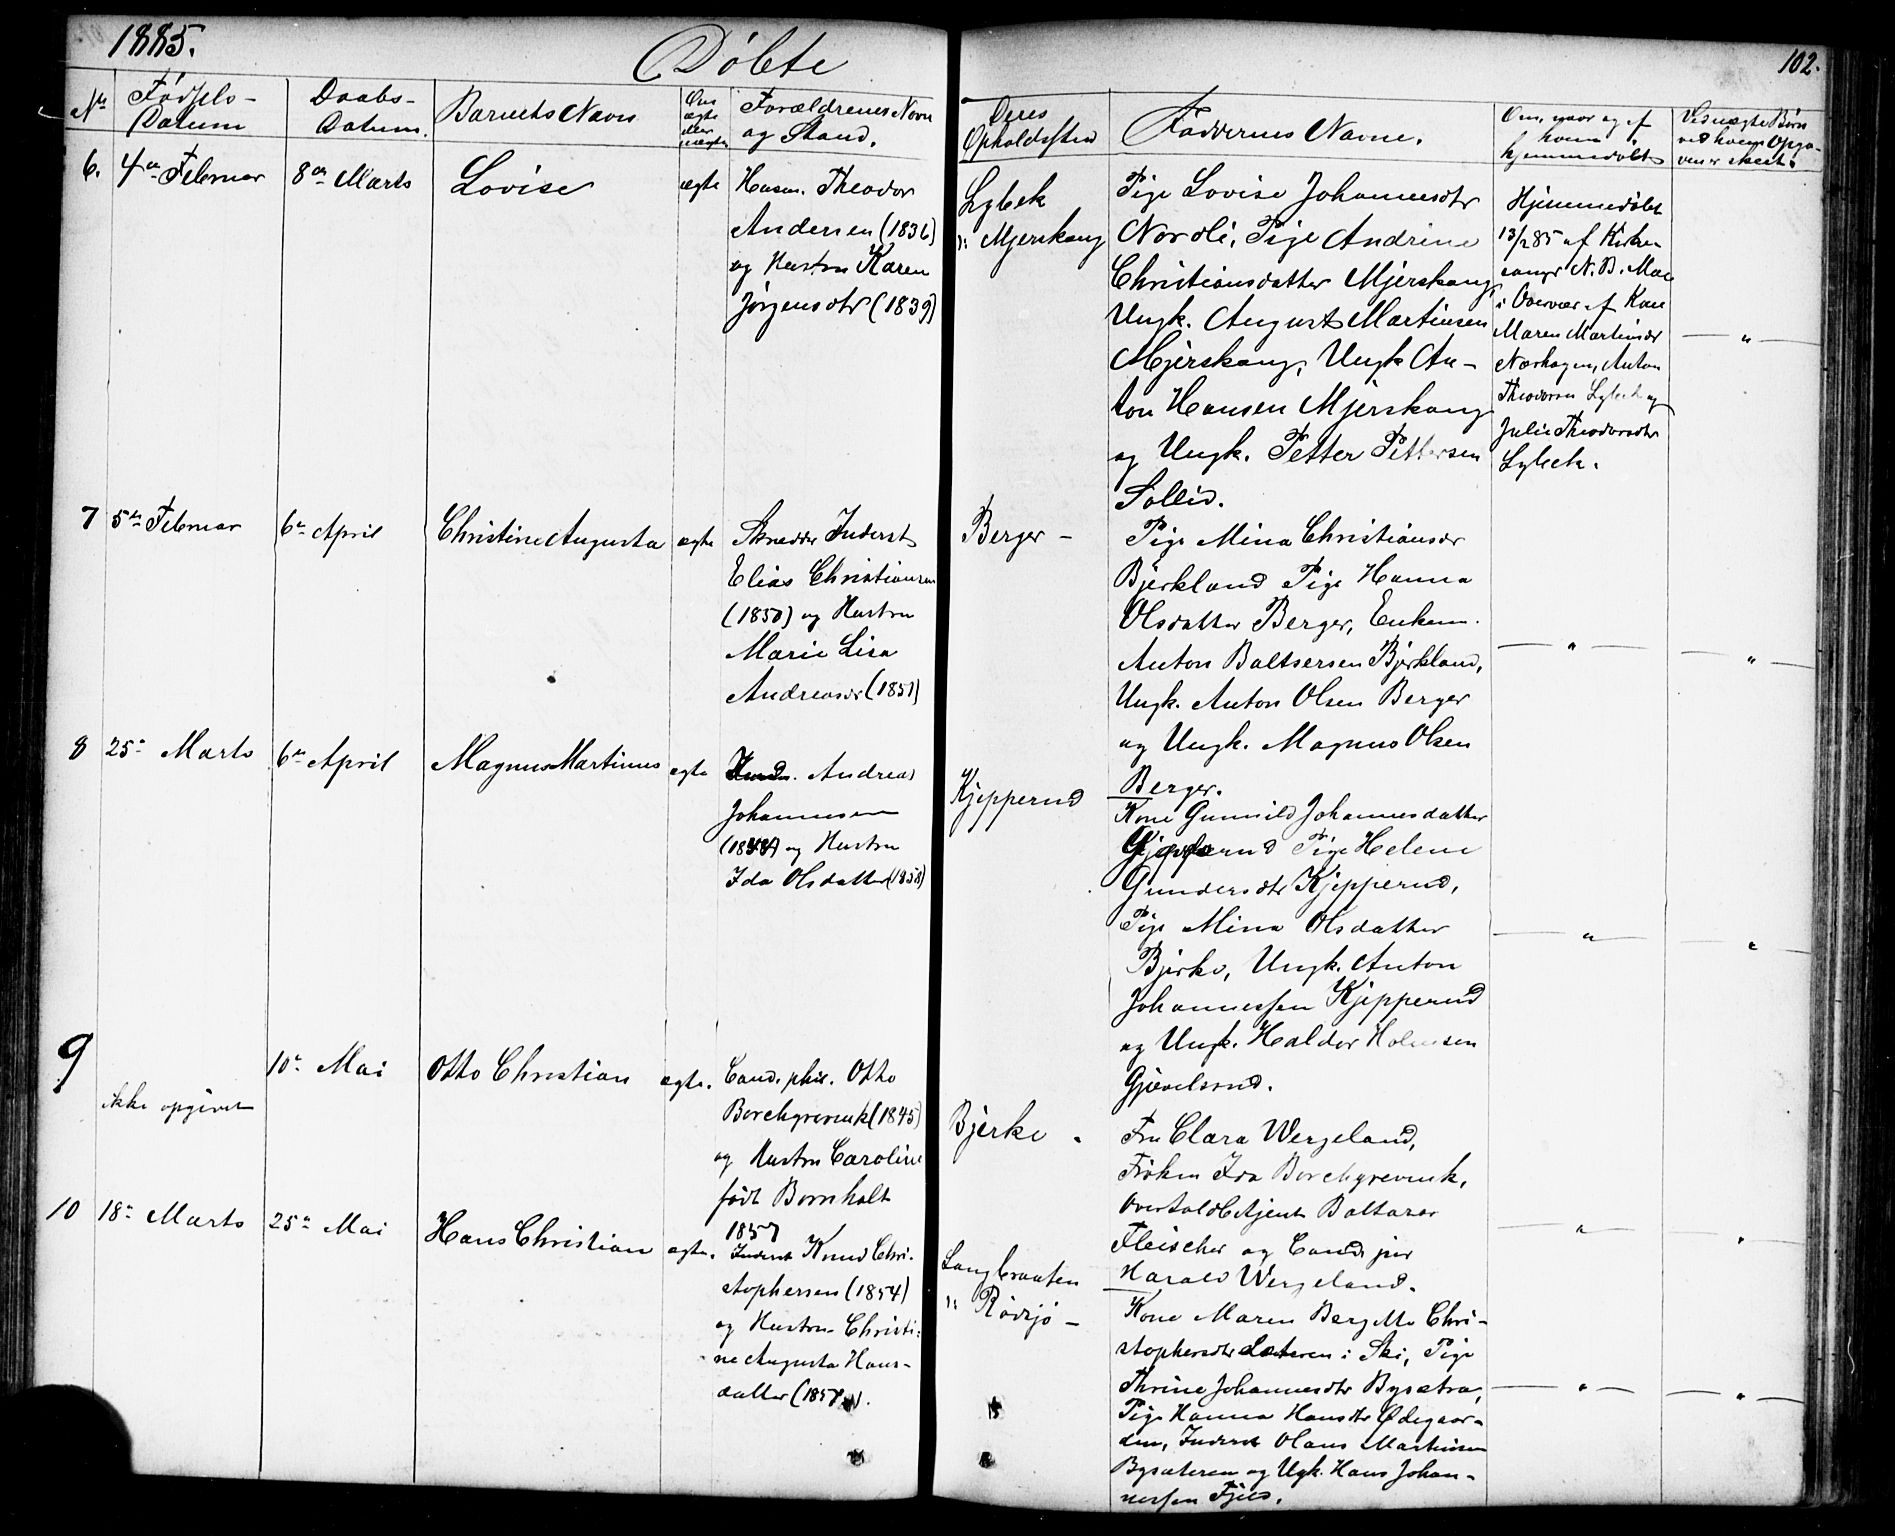 1885.
Döbte
102.
No
Fødsels-
Datum
Daabs-
Datum.
Barnets Navn
Om
ægte
eller
uægte
Forældrenes Navn
og Stand.
Deres
Opholdssted
Faddernes Navne.
Om, naar og af
hvem
hjemmedøbt
Ved uægte Børn
ved hvem Opga-
ven er skeet.
6.
4de Februar
8de Marts
Lovise
ægte
Husm. Theodor
Andersen (1836)
og Hustru Karen
Jörgensdtr (1839)
Lybek
n: Mjerskaug
Pige Lovise Johannesdtr
Nordli, Pige Andrine
Christiansdatter Mjerskaug,
Ungk. August Martinsen
Mjerskaug, Ungk An-
ton Hansen Mjerskaug
og Ungk. Petter Pettersen
Sollid.
Hjemmedøbt
13/2 85 af Kirke
sanger N. B. Moe
i Overvær af Kone
Maren Martinsdr
Nærhagen, Anton
Theodorsen Lybek og
Julie Theodorsdtr
Lybek.
"
7
5te Februar
6te April
Christine Augusta
ægte
Skredder Inderst
Elias Christiansen
(1850) og Hustru
Marie Lisa
Andreasdr (1851)
Berger -
Pige Mina Christiansdr
Bjerkland Pige Hanna
Olsdatter Berger, Enkem.
Anton Baltsersen Bjerkland,
Ungk. Anton Olsen Berger
og Ungk. Magnus Olsen
Berger.
"
"
8
25de Marts
6te April
Magnus Martinus
ægte
Andreas
Johannesen
og Hustru
Ida Olsdatter (1858)
Kjepperud
Kone Gunnild Johannesdatter
Kjepperud Pige Helene
Gundersdtr Kjepperud,
Pige Mina Olsdatter
Bjerke, Ungk. Anton
Johannessen Kjepperud
og Ungk. Haldor Halvorsen
Gjevelsrud.
"
"
9
ikke opgivet
10de Mai
Otto Christian
ægte.
Cand. phil. Otto
Borchgrevink (1845)
og Hustru Caroline
født Bornholt
1857
Bjerke -
Fru Clara Wergeland,
Frøken Ida Borchgrevink,
Overtoldbetjent Baltazar
Fleischer og Cand. jur
Harald Wergeland.
"
"
10
18de Marts
25de Mai
Hans Christian
ægte.
Inderst Knud Chri-
stophersen (1854)
og Hustru Christi-
ne Augusta Hans-
datter
Langbraaten
n: Rödsjö -
Kone Maren Bergitte Chri-
stophersdtr Sæteren i Ski, Pige
Thrine Johannesdtr Bysætra,
Pige Hanna Hansdtr Ødegaar-
den, Inderst Olaus Martinsen
Bysæteren og Ugk. Hans Johan-
nessen Fjeld.
"
"